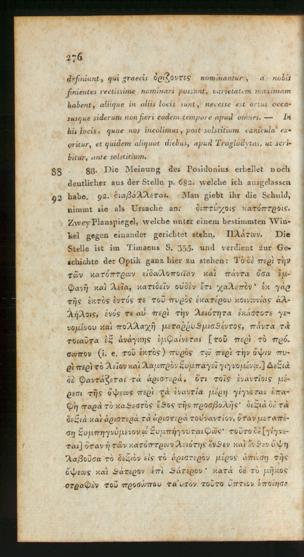 276
definiunt, qui graecis ὁρίζοντες nominantur, a nobis
finientes rectissime nominari possunt, varietatem maximam
habent, aliique in aliis locis sunt, necesse est ortus occa-
susque siderum non fieri eodem tempore apud omnes. — In
his locis, quae nos incolimus, post solstitium canicula ex-
oritur, et quidem aliquot diebus, apud Troglodytas, ut scri-
bitur, ante solstitium.
88 88. Die Meinung des Posidonius erhellet noch
deutlicher aus der Stelle p. 682. welche ich ausgelassen
92 habe. 92. διαβάλλεται. Man giebt ihr die Schuld,
nimmt sie als Ursache an. διπτύχοις κατόπτροις.
Zwey Planspiegel, welche unter einem bestimmten Win-
kel gegen einander gerichtet stehn. Πλάτων. Die
Stelle ist im Timaeus S. 333. und verdient zur Ge-
schichte der Optik ganz hier zu stehen: Τὸ δὲ περὶ τὴν
τῶν κατόπτρων εἰδωλοποιΐαν καὶ πάντα ὅσα ἐμ-
φανῆ καὶ λεῖα, κατιδεῖν οὐδὲν ἔτι χαλεπόν· ἐκ γὰρ
τῆς ἐκτὸς ἐντός τε τοῦ πυρὸς ἑκατέρου κοινωνίας ἀλ-
λήλοις, ἑνός τε αὖ περὶ τὴν λειότητα ἑκάστοτε γε-
νομένου καὶ πολλαχῇ μεταῤῥυθμισθέντος, πάντα τὰ
τοιαῦτα ἐξ ἀνάγκης ἐμφαίνεται [τοῦ περὶ τὸ πρό-
σωπον (i. e. τοῦ ἐκτὸς) πυρὸς τῷ περὶ τὴν ὄψιν πυ-
ρὶ περὶ τὸ λεῖον καὶ λαμπρὸν ξυμπαγεῖ γιγνομένῳ.] Δεξιὰ
δὲ φαντάζεται τὰ ἀριστερά, ὅτι τοῖς ἐναντίοις μέ-
ρεσι τῆς ὄψεως περὶ τὰ ἐναντία μέρη γίγνεται ἐπα-
φὴ παρὰ τὸ καθεστὸς ἔθος τῆς προσβολῆς· δεξιὰ δὲ τὰ
δεξιὰ καὶ ἀριστερὰ τὰ ἀριστερὰ τοὐναντίον, ὅταν μεταπέ-
σῃ ξυμπηγνύμενον ᾧ ξυμπήγνυται φῶς· τοῦτο δὲ [γίγνε-
ται] ὅταν ἡ τῶν κατόπτρων λειότης ἔνθεν καὶ ἔνθεν ὕψη
λαβοῦσα τὸ δεξιὸν εἰς τὸ ἀριστερὸν μέρος ἀπώσῃ τῆς
ὄψεως καὶ θάτερον ἐπὶ θάτερον· κατὰ δὲ τὸ μῆκος
στραφὲν τοῦ προσώπου ταὐτὸν τοῦτο ὕπτιον ἐποίησε